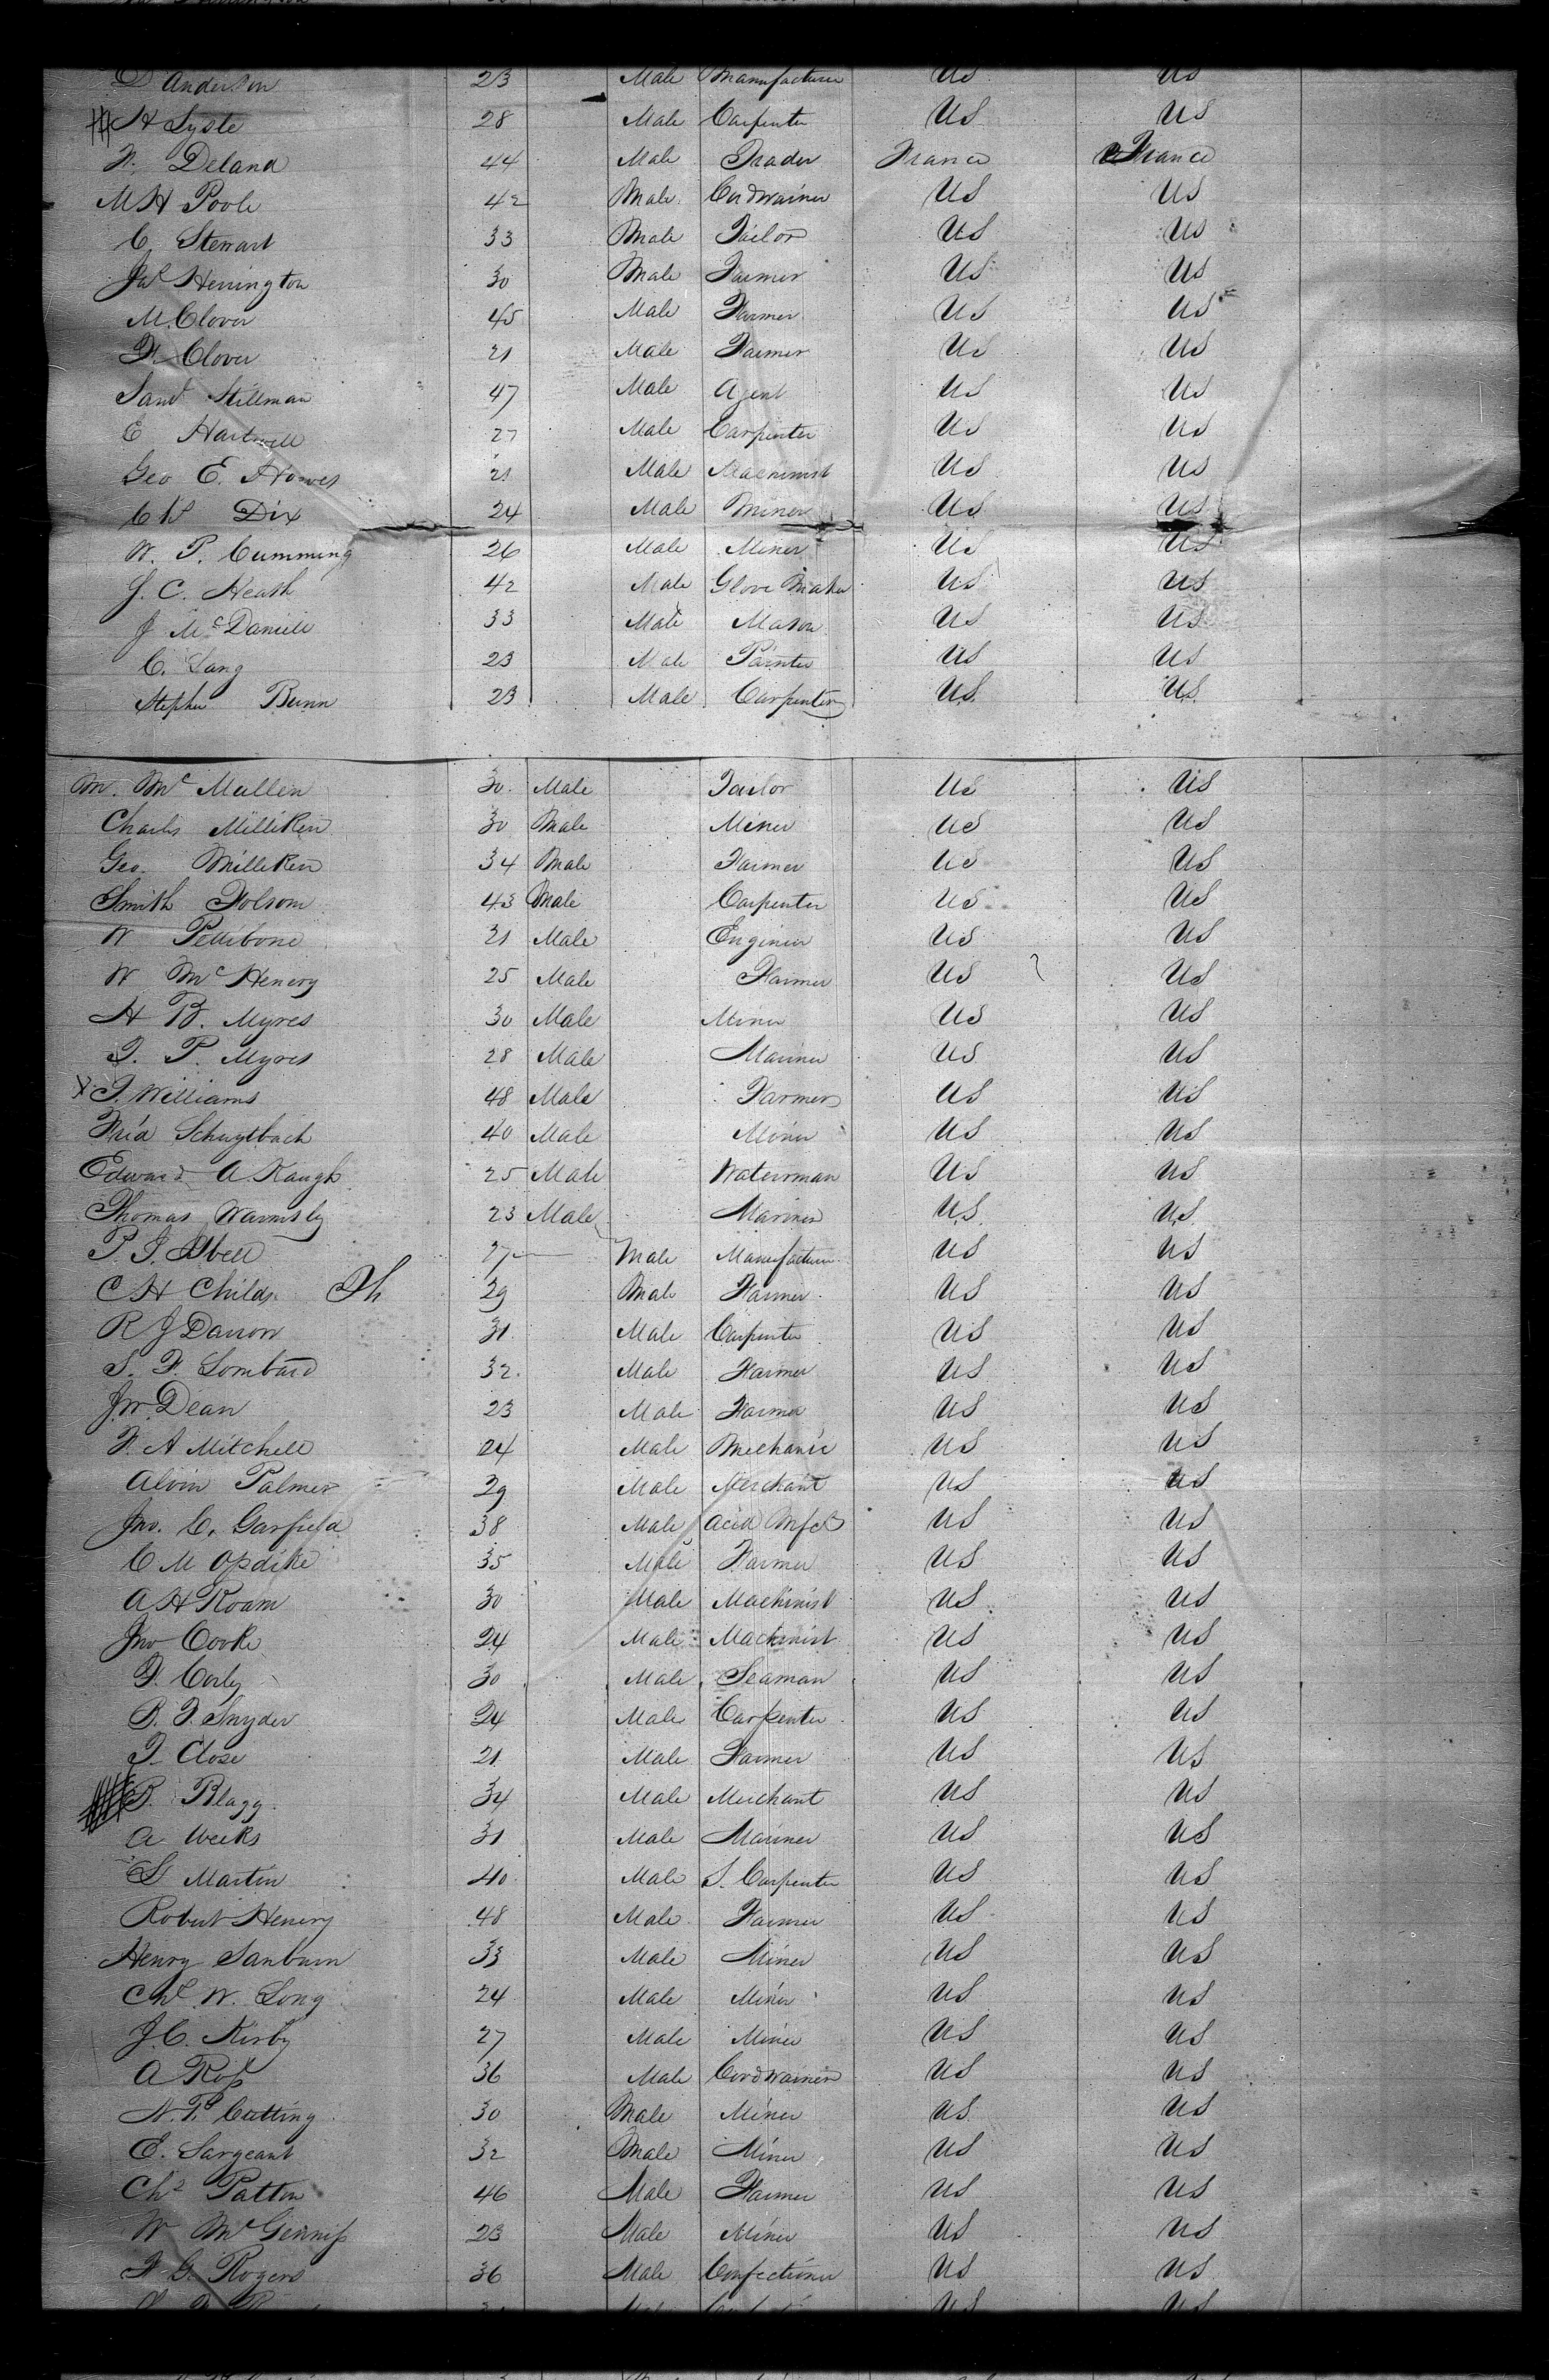 D Anderson 23 Male Manufacturer US US
H Lyste 28 Male Carpenter US US
F. Deland 44 Male Trader France France
M H Poole 42 Male Cordwainer US US
C. Stewart 33 Male Tailor US US
Jas Herrington 30 Male Farmer US US
M. Clover 45 Male Farmer US US
F. Clover 21 Male Farmer US US
Saml Stillman 47 Male Agent US US
E Hartwell 27 Male Carpenter US US
Geo E. Howes 21 Male Machinist US US
Dix 24 Male Miner US US
W. P. Cumming 26 Male Miner US US
J. C. Heath 42 Male Glove Maker US US
J McDaniell 33 Male Mason US US
C. Lang 23 Male Painter US US
Stephen Bunn 23 Male Carpenter U.S. U.S.
M. Mc Mullen 30. Male Tailor US US
Charles Milliken 30 Male Miner US US
Geo. Milliken 34 Male Farmer US US
Smith Folsom 43 Male Carpenter US US
W Pettibone 21 Male Engineer US US
W McHenery 25 Male Farmer US US
H B. Myres 30 Male Miner US US
T. P. Myres 28 Male Mariner US US
T. Williams 48 Male Farmer US US
Fred Schugtbach 40 Male Miner US US
Edward A Kaugh 25 Male Waterman US US
Thomas Warmsly 23 Male Mariner U.S. U.S.
P. J. Abell 27 Male Manufacturer US US
C H Childs Th 29 Male Farmer US US
R J Darrow 31. Male Carpenter US US
S. F. Lombard 32. Male Farmer US US
J. W. Dean 23 Male Farmer US US
F. A Mitchell 24 Male Mechanic US US
Alvin Palmer 29 Male Merchant US US
Jno. C. Garfield 38 Male Acid Mfcr US US
C M Opdike 35 Male Farmer US US
A H Roam 30 Male Machinist US US
Jno Cooke 24 Male Machinist US US
T. Corly 30 Male Seaman US US
B. F. Snyder 24 Male Carpenter US US
T. Close 21 Male Farmer US US
B. Blagg 34 Male Merchant US US
A Weeks 31 Male Mariner US US
S Martin 40 Male S. Carpenter US US
Robert Henery 48 Male Farmer US US
Henry Sanburn 33 Male Miner US US
Chs W. Long 24 Male Miner US US
J. C. Kirby 27 Male Miner US US
A Ross 36 Male Cordwainer US US
N. P. Cutting 30 Male Miner US US
E. Sargeant 32 Male Miner US US
Chs Patten 46 Male Farmer US US
W McGenniss 23 Male Miner US US
F G. Rogers 36 Male Confectioner US US
US US